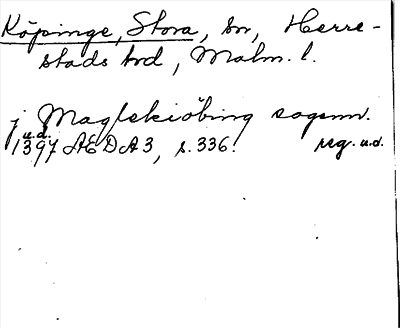 Köpinge, Stora, sn, Herre-
stads hrd, Malm. l.
j Maglekiöbing sogenn.
u.d.
1397 AEDA3, s. 336. reg. u.d.